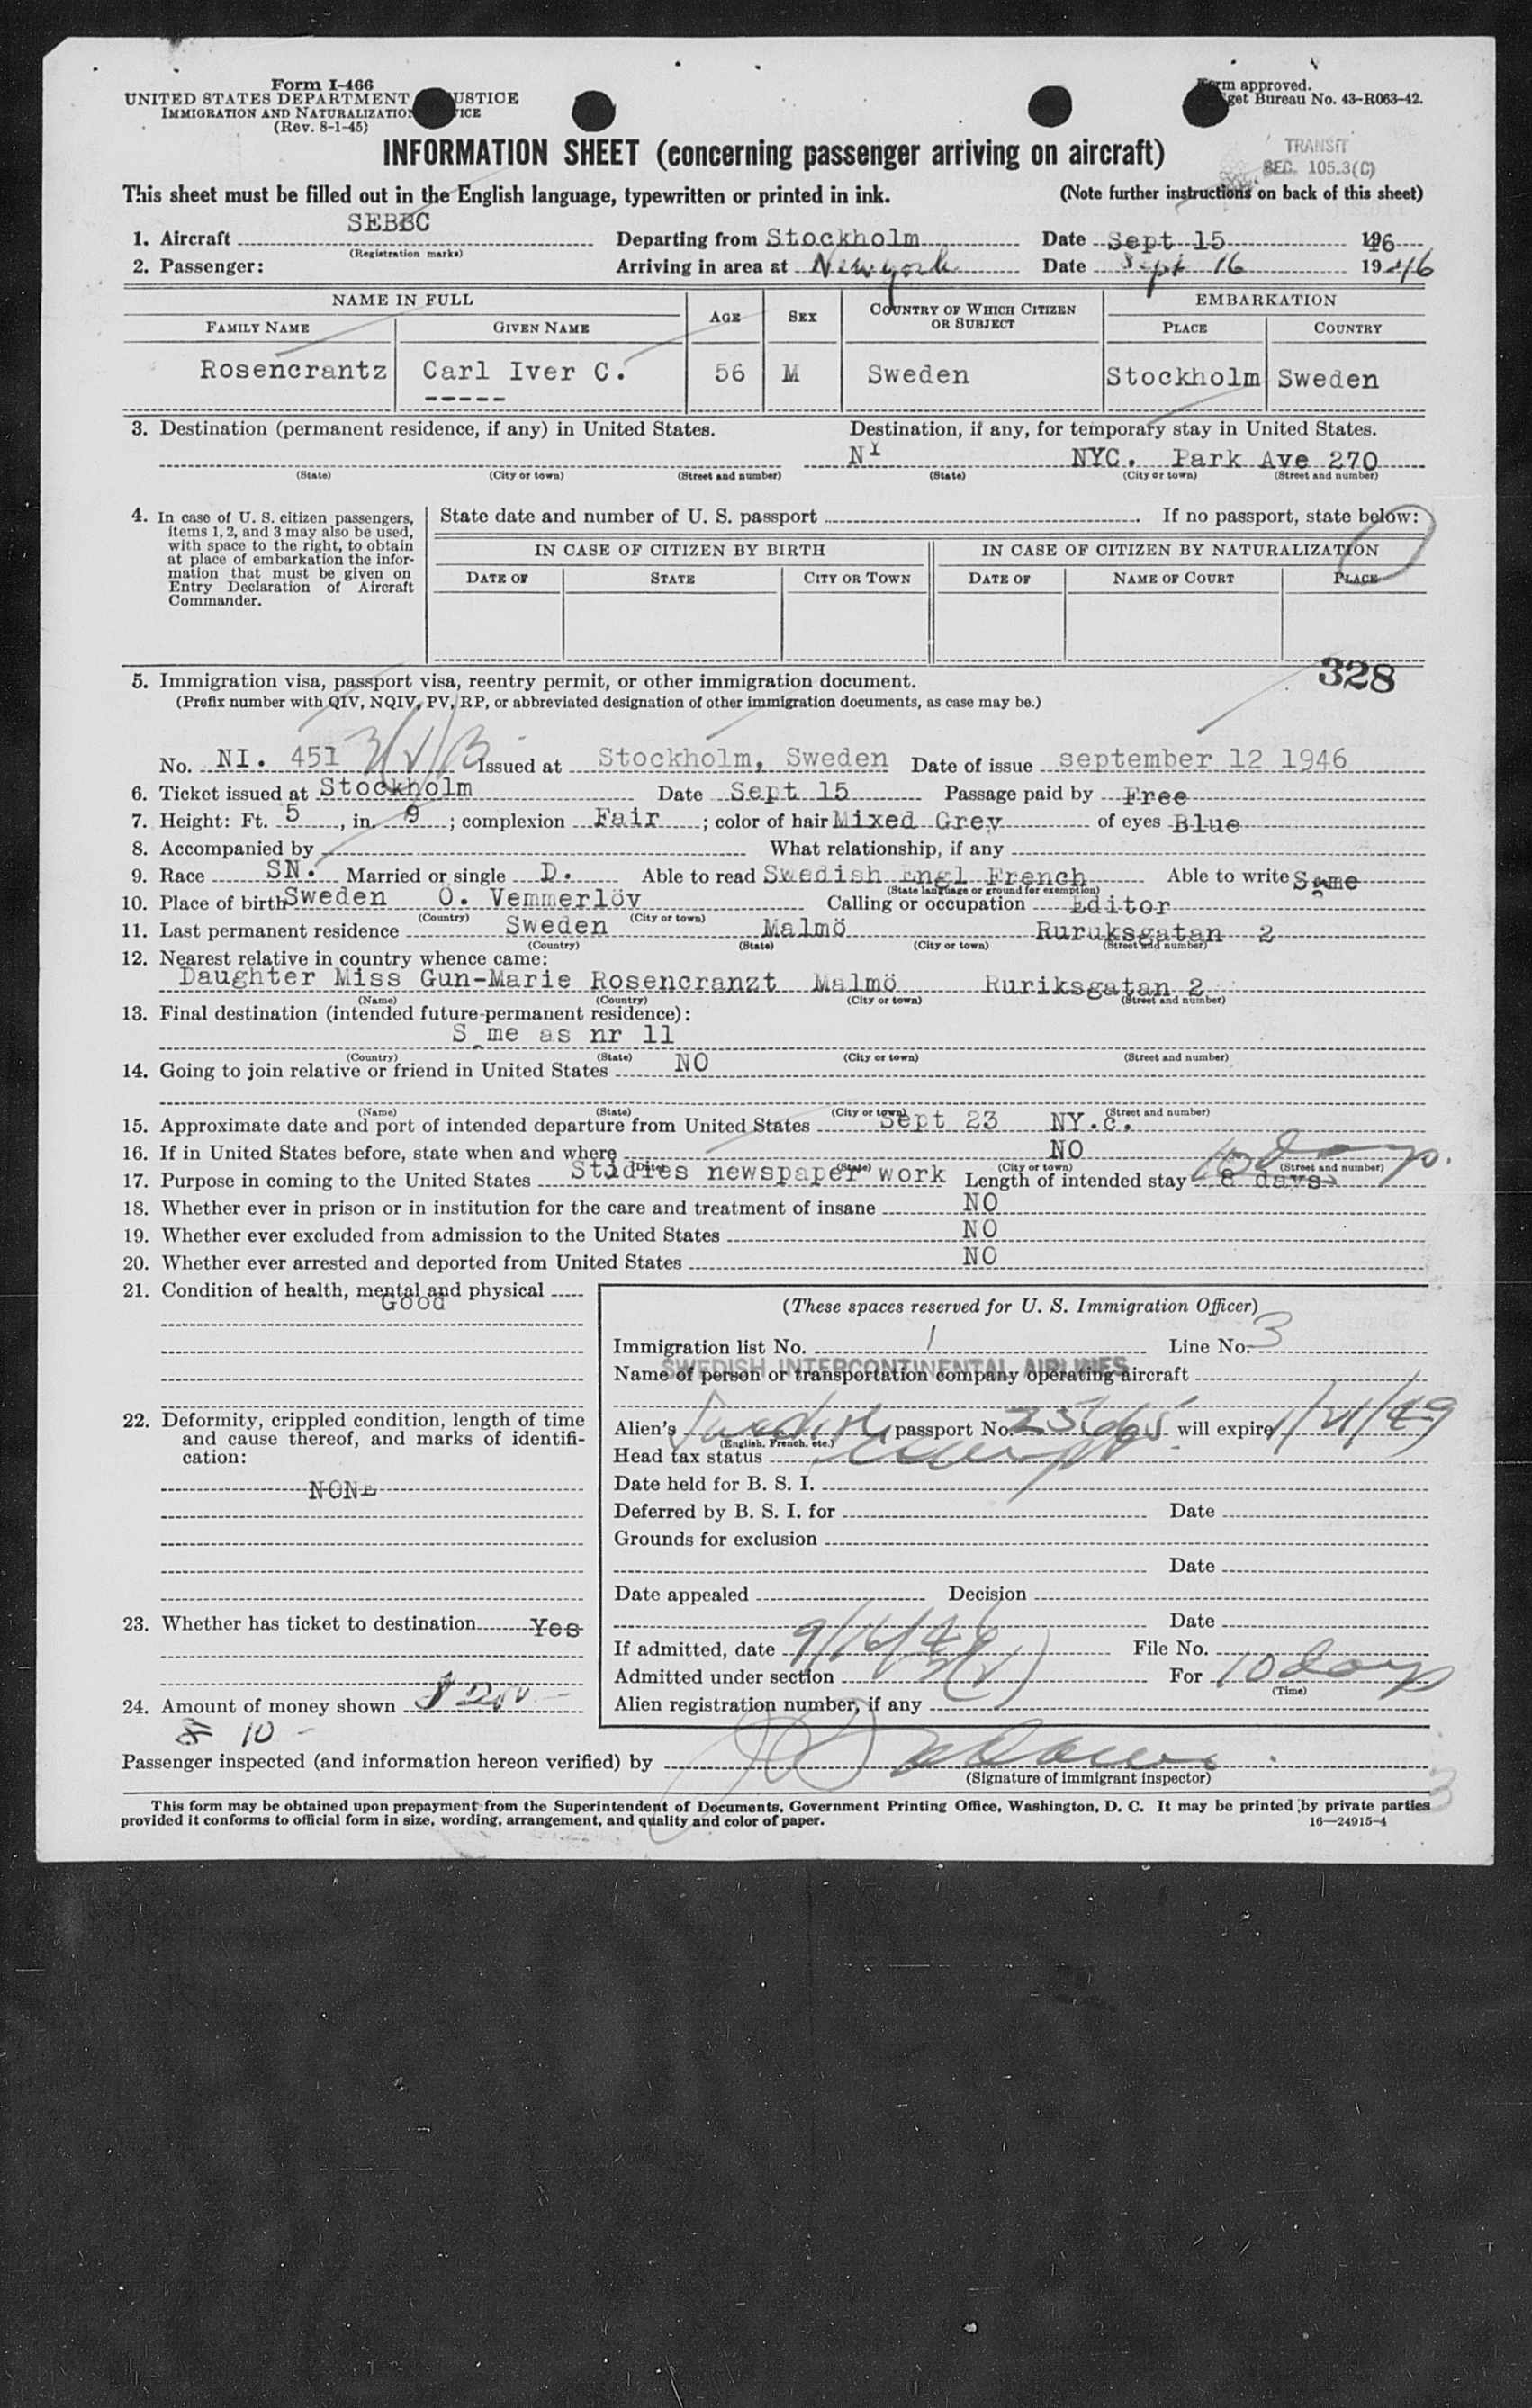 Form I-466
UNITED STATES DEPARTMENT USTICE
IMMIGRATION AND NATURALIZATION ICE
(Rev. 8-1-45)
m approved.
get Bureau No. 43-R063-42.
INFORMATION SHEET (concerning passenger arriving on aircraft)
TRANSIT
SEC. 105.3(C)
This sheet must be filled out in the English language, typewritten or printed in ink. (Note further instructions on back of this sheet)
1. Aircraft SEBBC Departing from Stockholm Date Sept 15 1946
(Registration marks)
2. Passenger: Arriving in area at New york Date Sept 16 1946
NAME IN FULL AGE SEX COUNTRY OF WHICH CITIZEN OR SUBJECT EMBARKATION
FAMILY NAME GIVEN NAME PLACE COUNTRY
Rosencrantz Carl Iver C. 56 M Sweden Stockholm Sweden
3. Destination (permanent residence, if any) in United States. Destination, if any, for temporary stay in United States.
NY NYC. Park Ave 270
(State) (City or town) (Street and number) (State) (City or town) (Street and number)
4. In case of U. S. citizen passengers, items 1, 2, and 3 may also be used, with space to the right, to obtain at place of embarkation the information that must be given on Entry Declaration of Aircraft Commander.
State date and number of U. S. passport If no passport, state below:
IN CASE OF CITIZEN BY BIRTH IN CASE OF CITIZEN BY NATURALIZATION
DATE OF STATE CITY OR TOWN DATE OF NAME OF COURT PLACE
328
5. Immigration visa, passport visa, reentry permit, or other immigration document.
(Prefix number with QIV, NQIV, PV, RP, or abbreviated designation of other immigration documents, as case may be.)
No. NI. 451 Issued at Stockholm, Sweden Date of issue september 12 1946
6. Ticket issued at Stockholm Date Sept 15 Passage paid by Free
7. Height: Ft. 5, in. 9; complexion Fair; color of hair Mixed Grey of eyes Blue
8. Accompanied by What relationship, if any
9. Race SN. Married or single D. Able to read Swedish Engl French Able to write Same
(State language or ground for exemption)
10. Place of birth Sweden Ö. Vemmerlöv Calling or occupation Editor
(Country) (City or town)
11. Last permanent residence Sweden Malmö Ruruksgatan 2
(Country) (State) (City or town) (Street and number)
12. Nearest relative in country whence came:
Daughter Miss Gun-Marie Rosencranzt Malmö Ruriksgatan 2
(Name) (Country) (City or town) (Street and number)
13. Final destination (intended future permanent residence):
S me as nr 11
(Country) (State) (City or town) (Street and number)
14. Going to join relative or friend in United States NO
(Name) (State) (City or town) (Street and number)
15. Approximate date and port of intended departure from United States Sept 23 NY.c.
16. If in United States before, state when and where NO
(Date) (State) (City or town) (Street and number)
10 days.
17. Purpose in coming to the United States Studies newspaper work Length of intended stay 8 days
18. Whether ever in prison or in institution for the care and treatment of insane NO
19. Whether ever excluded from admission to the United States NO
20. Whether ever arrested and deported from United States NO
21. Condition of health, mental and physical
Good
22. Deformity, crippled condition, length of time and cause thereof, and marks of identification:
NONE
23. Whether has ticket to destination Yes
24. Amount of money shown $ 200 -
10 -
(These spaces reserved for U. S. Immigration Officer)
Immigration list No. 1 Line No. 3
SWEDISH INTERCONTINENTAL AIRLINES
Name of person or transportation company operating aircraft
Alien's Swedish passport No. will expire 1/21/49
(English, French, etc.)
Head tax status
Date held for B. S. I.
Deferred by B. S. I. for Date
Grounds for exclusion
Date
Date appealed Decision
Date
If admitted, date 9/16/46 File No.
Admitted under section 3(2) For 10 days
(Time)
Alien registration number, if any
Passenger inspected (and information hereon verified) by
(Signature of immigrant inspector)
This form may be obtained upon prepayment from the Superintendent of Documents, Government Printing Office, Washington, D. C. It may be printed by private parties
provided it conforms to official form in size, wording, arrangement, and quality and color of paper. 16—24915-4
3